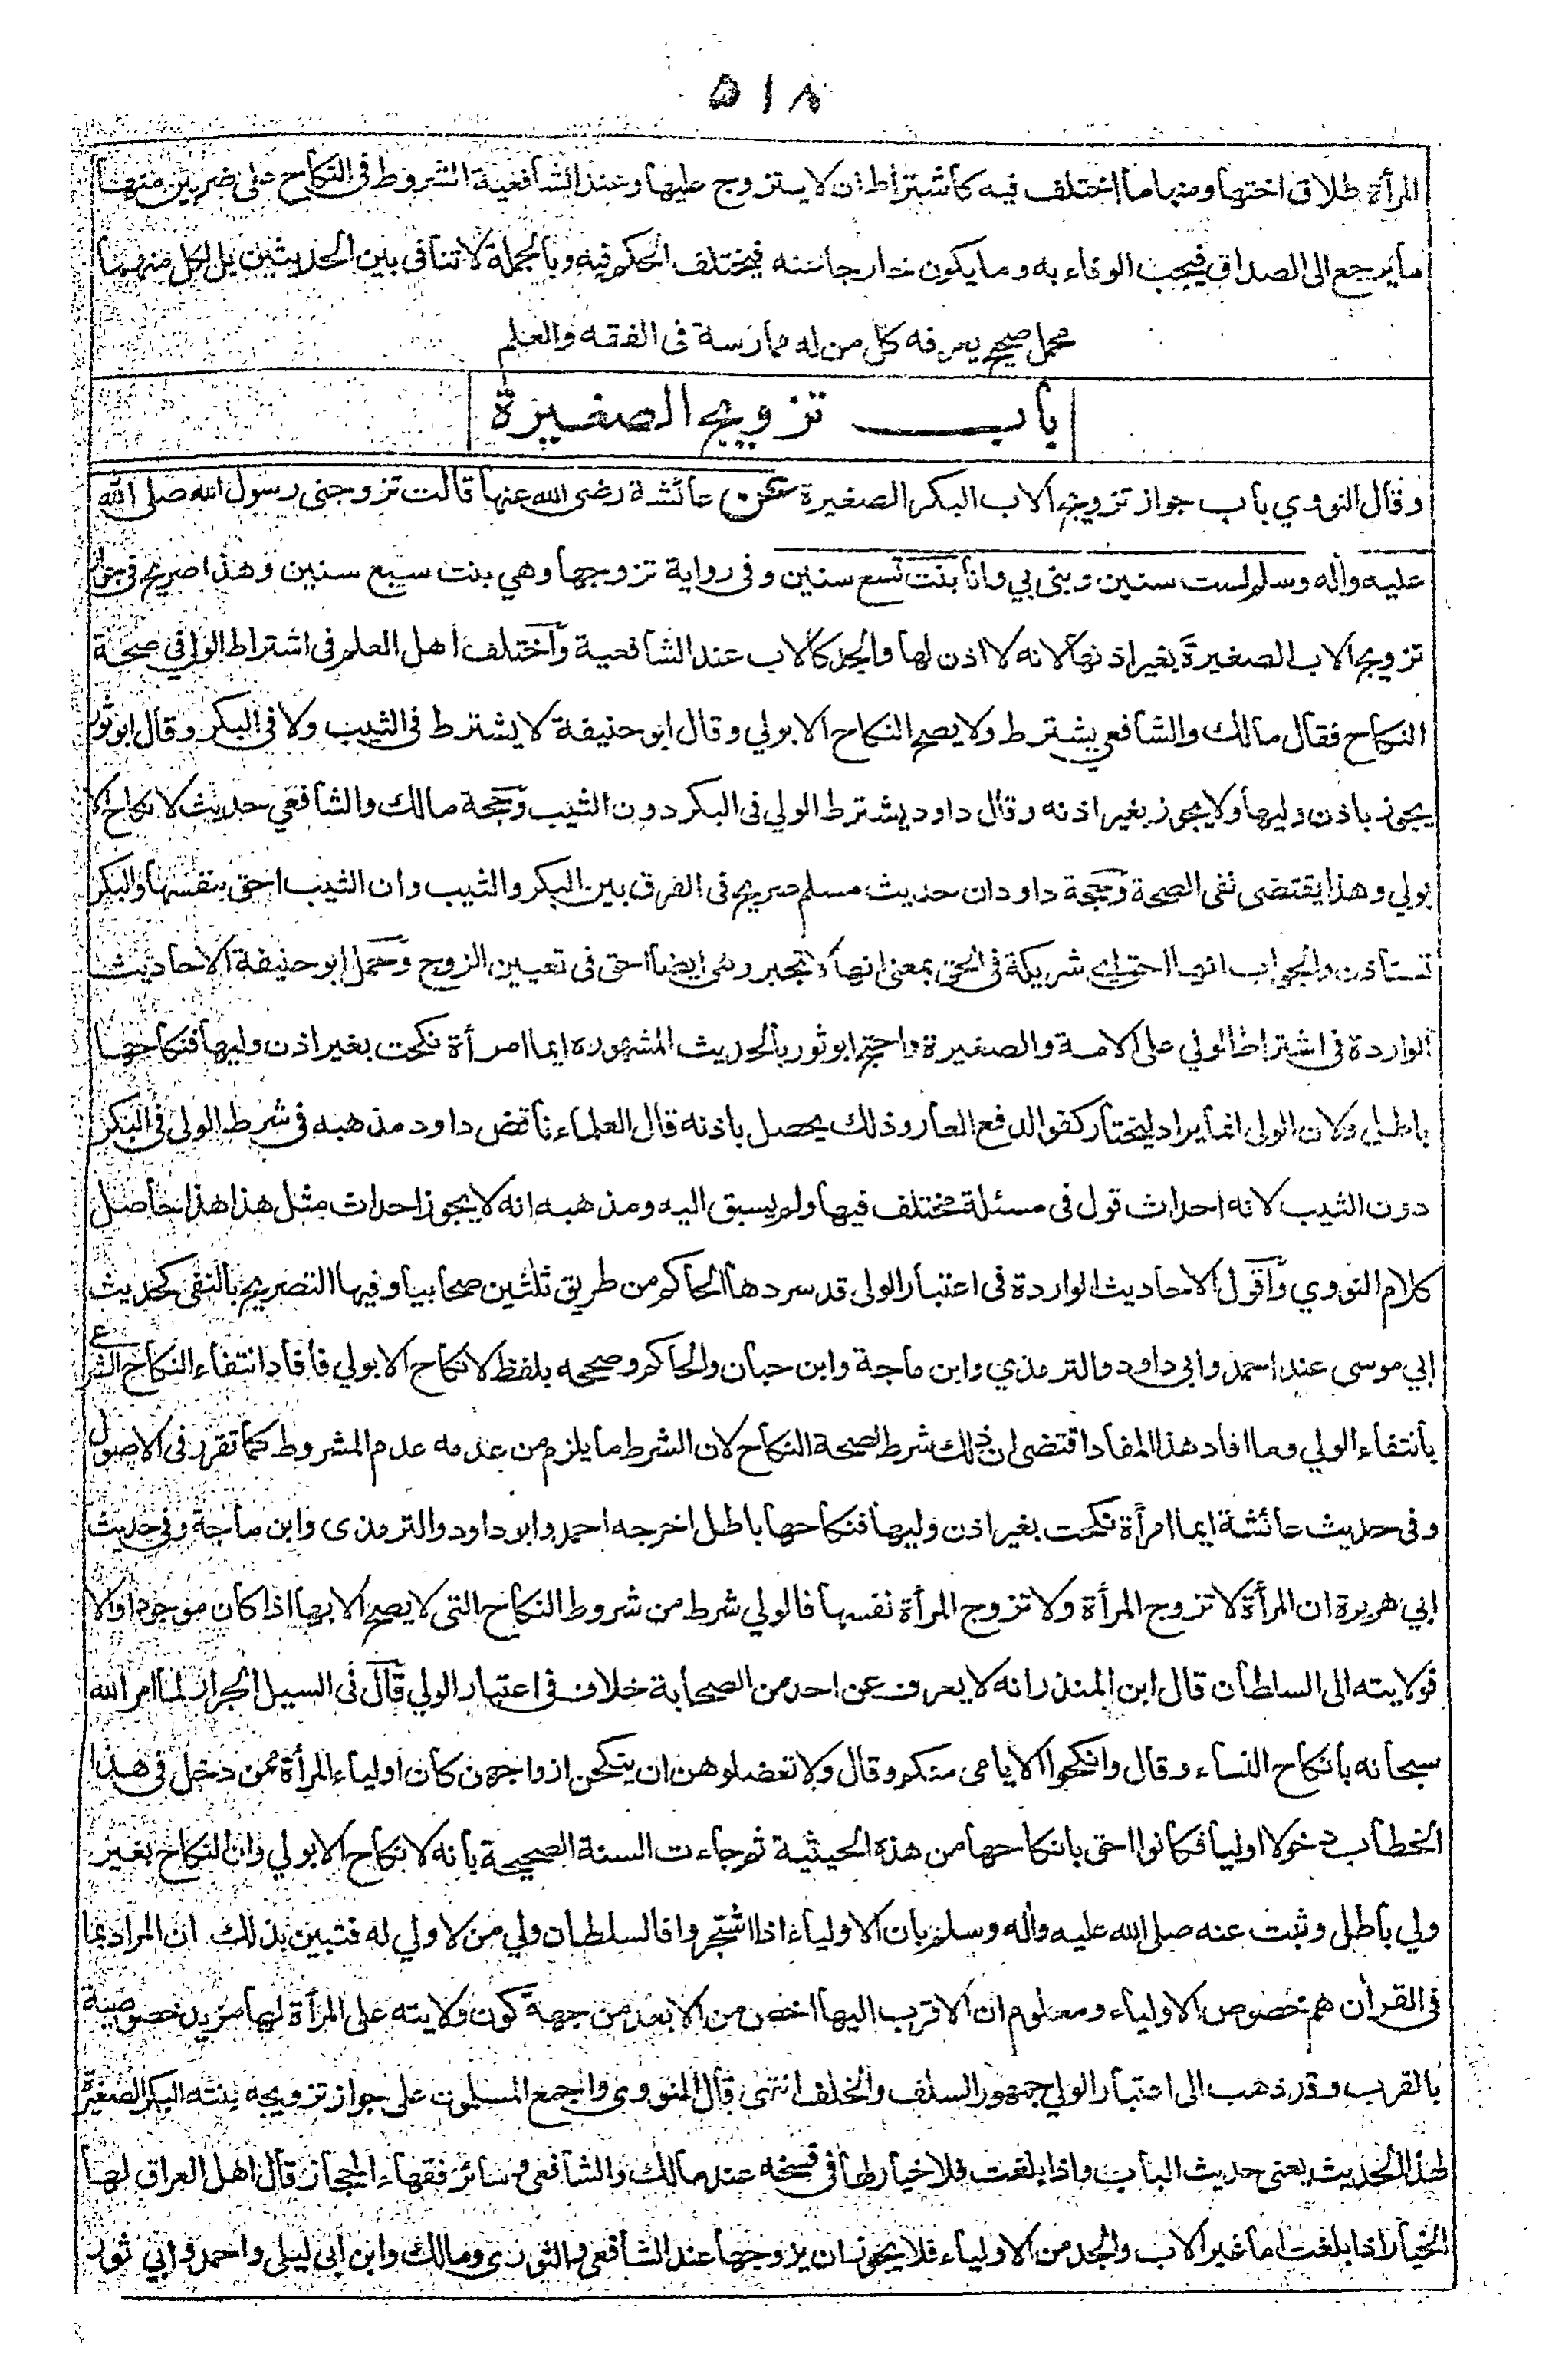 ٥١٨
المرأة طلاق اختها ومنها ما اختلف فيه كاشتراط ان لا يتزوج عليها وعند الشافعية الشروط فى النكاح على ضربين منها
ما يرجع الى الصداق فيجب الوفاء به وما يكون خارجا عنه فيختلف الحكم فيه وبالجملة لا تنافى بين الحديثين بل لكل منهما
محمل صحيح يعرفه كل من له ممارسة فى الفقه والعلم
باب تزويج الصغيرة
وقال النووي باب جواز تزويج الاب البكر الصغيرة عن عائشة رضى الله عنها قالت تزوجنى رسول الله صلى الله
عليه وأله وسلم لست سنين وبنى بي وانا بنت تسع سنين وفى رواية تزوجها وهي بنت سبع سنين وهذا صريح فى جواز
تزويج الاب الصغيرة بغير اذنها لانه لا اذن لها والجد كالاب عند الشافعية واختلف اهل العلم فى اشتراط الولي فى صحة
النكاح فقال مالك والشافعي يشترط ولا يصح النكاح الا بولي وقال ابو حنيفة لا يشترط فى الثيب ولا فى البكر وقال ابو ثور
يجوز باذن وليها ولا يجوز بغير اذنه وقال داود يشترط الولي فى البكر دون الثيب وحجة مالك والشافعي حديث لا نكاح الا
بولي وهذا يقتضى نفى الصحة وحجة داود ان حديث مسلم صريح فى الفرق بين البكر والثيب وان الثيب احق بنفسها والبكر
تستأذن والجواب انها احق اي شريكة فى الحق بمعنى انها لا تجبر وهي ايضا احق فى تعيين الزوج وحمل ابو حنيفة الاحاديث
الواردة فى اشتراط الولي على الامة والصغيرة واحتج ابو ثور بالحديث المشهور ايما امرأة نكحت بغير اذن وليها فنكاحها
باطل ولان الولي انما يراد ليختار كفوا لدفع العار وذلك يحصل باذنه قال العلماء ناقض داود مذهبه فى شرط الولي فى البكر
دون الثيب لانه احداث قول فى مسئلة مختلف فيها ولم يسبق اليه ومذهبه انه لا يجوز احداث مثل هذا هذا حاصل
كلام النووي واقول الاحاديث الواردة فى اعتبار الولي قد سردها الحاكم من طريق ثلثين صحابيا وفيها التصريح بالنفى كحديث
ابي موسى عند احمد وابى داود والترمذي وابن ماجة وابن حبان والحاكم وصححه بلفظ لا نكاح الا بولي فافاد انتفاء النكاح الشرعي
بانتفاء الولي وما افاد هذا المفاد اقتضى ان ذلك شرط لصحة النكاح لان الشرط ما يلزم من عدمه عدم المشروط كما تقرر فى الاصول
وفى حديث عائشة ايما امرأة نكحت بغير اذن وليها فنكاحها باطل اخرجه احمد وابو داود والترمذى وابن ماجة وفى حديث
ابي هريرة ان المرأة لا تزوج المرأة ولا تزوج المرأة نفسها فالولي شرط من شروط النكاح التى لا يصح الا بها اذا كان موجودا والا
فولايته الى السلطان قال ابن المنذر انه لا يعرف عن احد من الصحابة خلاف فى اعتبار الولي قال فى السيل الجرار لما امر الله
سبحانه بانكاح النساء وقال وانكحوا الايامى منكم وقال ولا تعضلوهن ان ينكحن ازواجهن كان اولياء المرأة ممن دخل فى هذا
الخطاب دخولا اوليا فكانوا احق بانكاحها من هذه الحيثية ثم جاءت السنة الصحيحة بانه لا نكاح الا بولي وان النكاح بغير
ولي باطل وثبت عنه صلى الله عليه وأله وسلم بان الاولياء اذا اشتجروا فالسلطان ولي من لا ولي له فتبين بذلك ان المراد بما
فى القرأن هم خصوص الاولياء ومعلوم ان الاقرب اليها اخص من الابعد من جهة كون ولايته على المرأة لها مزيد خصوصية
بالقرب وقد ذهب الى اعتبار الولي جمهور السلف والخلف انتهى قال النووى واجمع المسلمون على جواز تزويجه بنته البكر الصغيرة
لهذا الحديث يعنى حديث الباب واذا بلغت فلا خيار لها فى فسخه عند مالك والشافعى وسائر فقهاء الحجاز وقال اهل العراق لها
الخيار اذا بلغت اما غير الاب والجد من الاولياء فلا يجوز ان يزوجها عند الشافعى والثورى ومالك وابن ابى ليلى واحمد وابي ثور